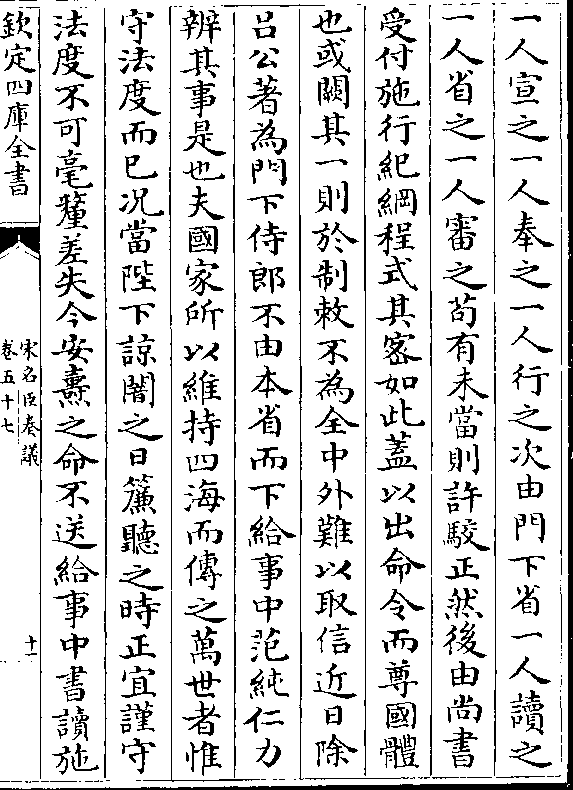 一人宣之一人奉之一人行之次由門下省一人讀之
一人省之一人審之苟有未當則許駮正然後由尚書
受付施行紀綱程式其宻如此蓋以出命令而尊國體
也或闕其一則於制敕不為全中外難以取信近日除
吕公著為門下侍郎不由本省而下給事中范純仁力
辨其事是也夫國家所以維持四海而傳之萬世者惟
守法度而已况當陛下諒闇之日簾聽之時正宜謹守
法度不可毫釐差失今安燾之命不送給事中書讀施
欽定四庫全書
宋名臣奏議
卷五十七
十一